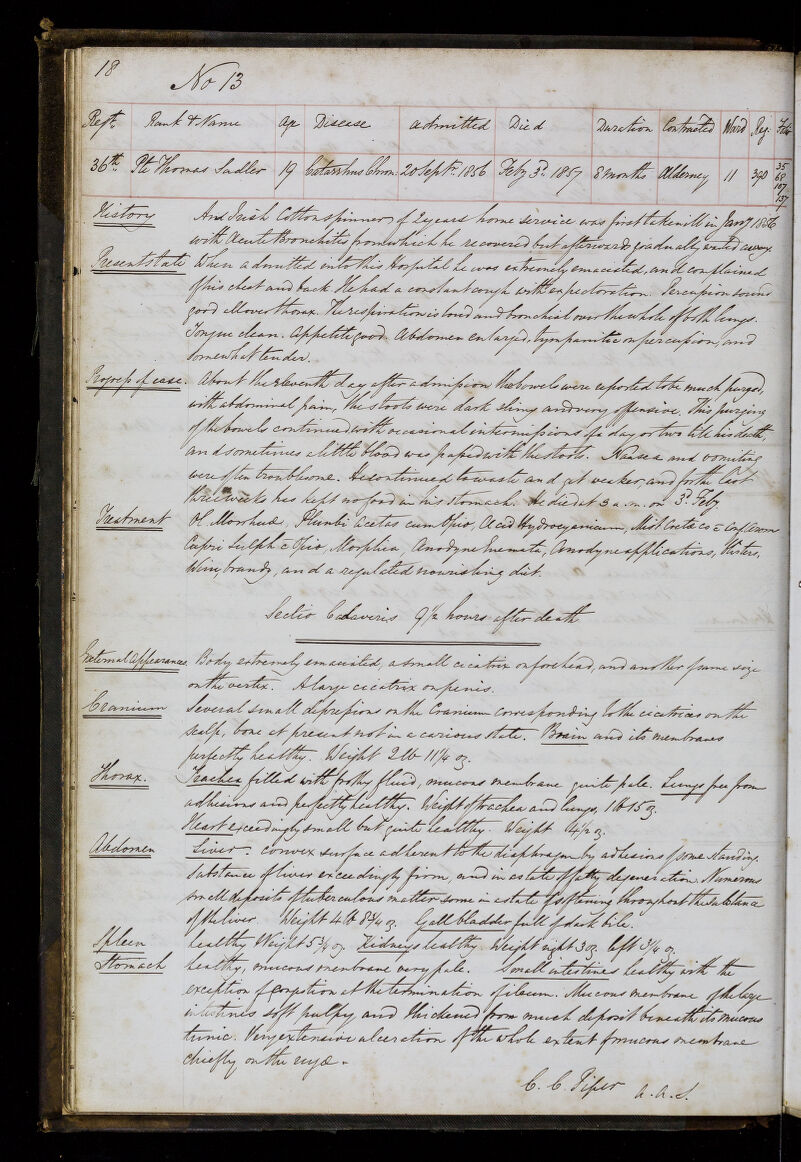 18
No 13
Regt. Rank & Name Age Disease admitted Died Duration Contracted Ward Reg: Folio
36th Pte Thomas Sadler 19 Catarrhus Chron: 20 Septr. 1856 Feby 3d. 1857 8 months Alderney 11 390 35 68 107 137
History An Irish Cotton spinner of 2 years home service was first taken ill in Jany 1856
with Acute Bronchitis from which he recovered but afterwards gradually wasted away.
Present state When admitted into this Hospital he was extremely emaciated, and complained
of his chest and back. He had a constant cough with expectoration. Percussion sound
good all over thorax. The respiration is loud and bronchial over the whole of both lungs.
Tongue clean. Appetite good. Abdomen enlarged, tympanitic on percussion, and
somewhat tender.
Progress of case. About the eleventh day after admission the bowels were reported to be much purged,
with abdominal pain, the stools were dark slimy and very offensive. This purging
of the bowels continued with occasional intermissions of a day or two till his death,
and sometimes a little blood was passed with the stools. Nausea and vomiting
were often troublesome. He continued to waste and get weaker, and for the last
three weeks has kept no food in his stomach. He died at 3 a.m. on 3d. Feby
Treatment Ol. Morrhuae, Plumbi Acetas cum Opio, Acid Hydrocyanicum, Mist Cretae co c Conf. Arom
Cupri Sulph c Opio, Morphia, Anodyne Enemata, Anodyne applications, Blisters,
Wine, brandy, and a regulated nourishing diet.
Sectio Cadaveris 9 1/2 hours after death
External Appearances. Body extremely emaciated, a small cicatrix on forehead, and another same size
on the vertex. A large cicatrix on penis.
Cranium Several small depressions on the Cranium corresponding to the cicatrices on the
scalp, bone at present not in a carious state. Brain and its membranes
perfectly healthy. Weight 2 lb 11 1/4 oz.
Thorax. Trachea filled with frothy fluid, mucous membrane quite pale. Lungs free from
adhesions and perfectly healthy. Weight of trachea and lungs, 1 lb 15 oz.
Heart exceedingly small but quite healthy. Weight 4 1/2 oz.
Abdomen Liver. convex surface adherent to the diaphragm by adhesions of some standing.
Substance of liver exceedingly firm, and in a state of fatty degeneration. Numerous
small deposits of tuberculous matter some in a state of softening throughout the substance
of the liver. Weight 4 lb 8 3/4 oz. Gall bladder full of dark bile.
Spleen healthy Weight 5 3/4 oz. Kidneys healthy. Weight right 3 oz. left 3 1/4 oz.
Stomach healthy, mucous membrane very pale. Small intestines healthy with the
exception of congestion at the termination of ileum. Mucous membrane of the large
intestines soft pulpy and thickened from much deposit beneath its mucous
tunic. Very extensive ulceration of the whole extent of mucous membrane
chiefly on the rugæ.
C. C. Piper A. A. S.